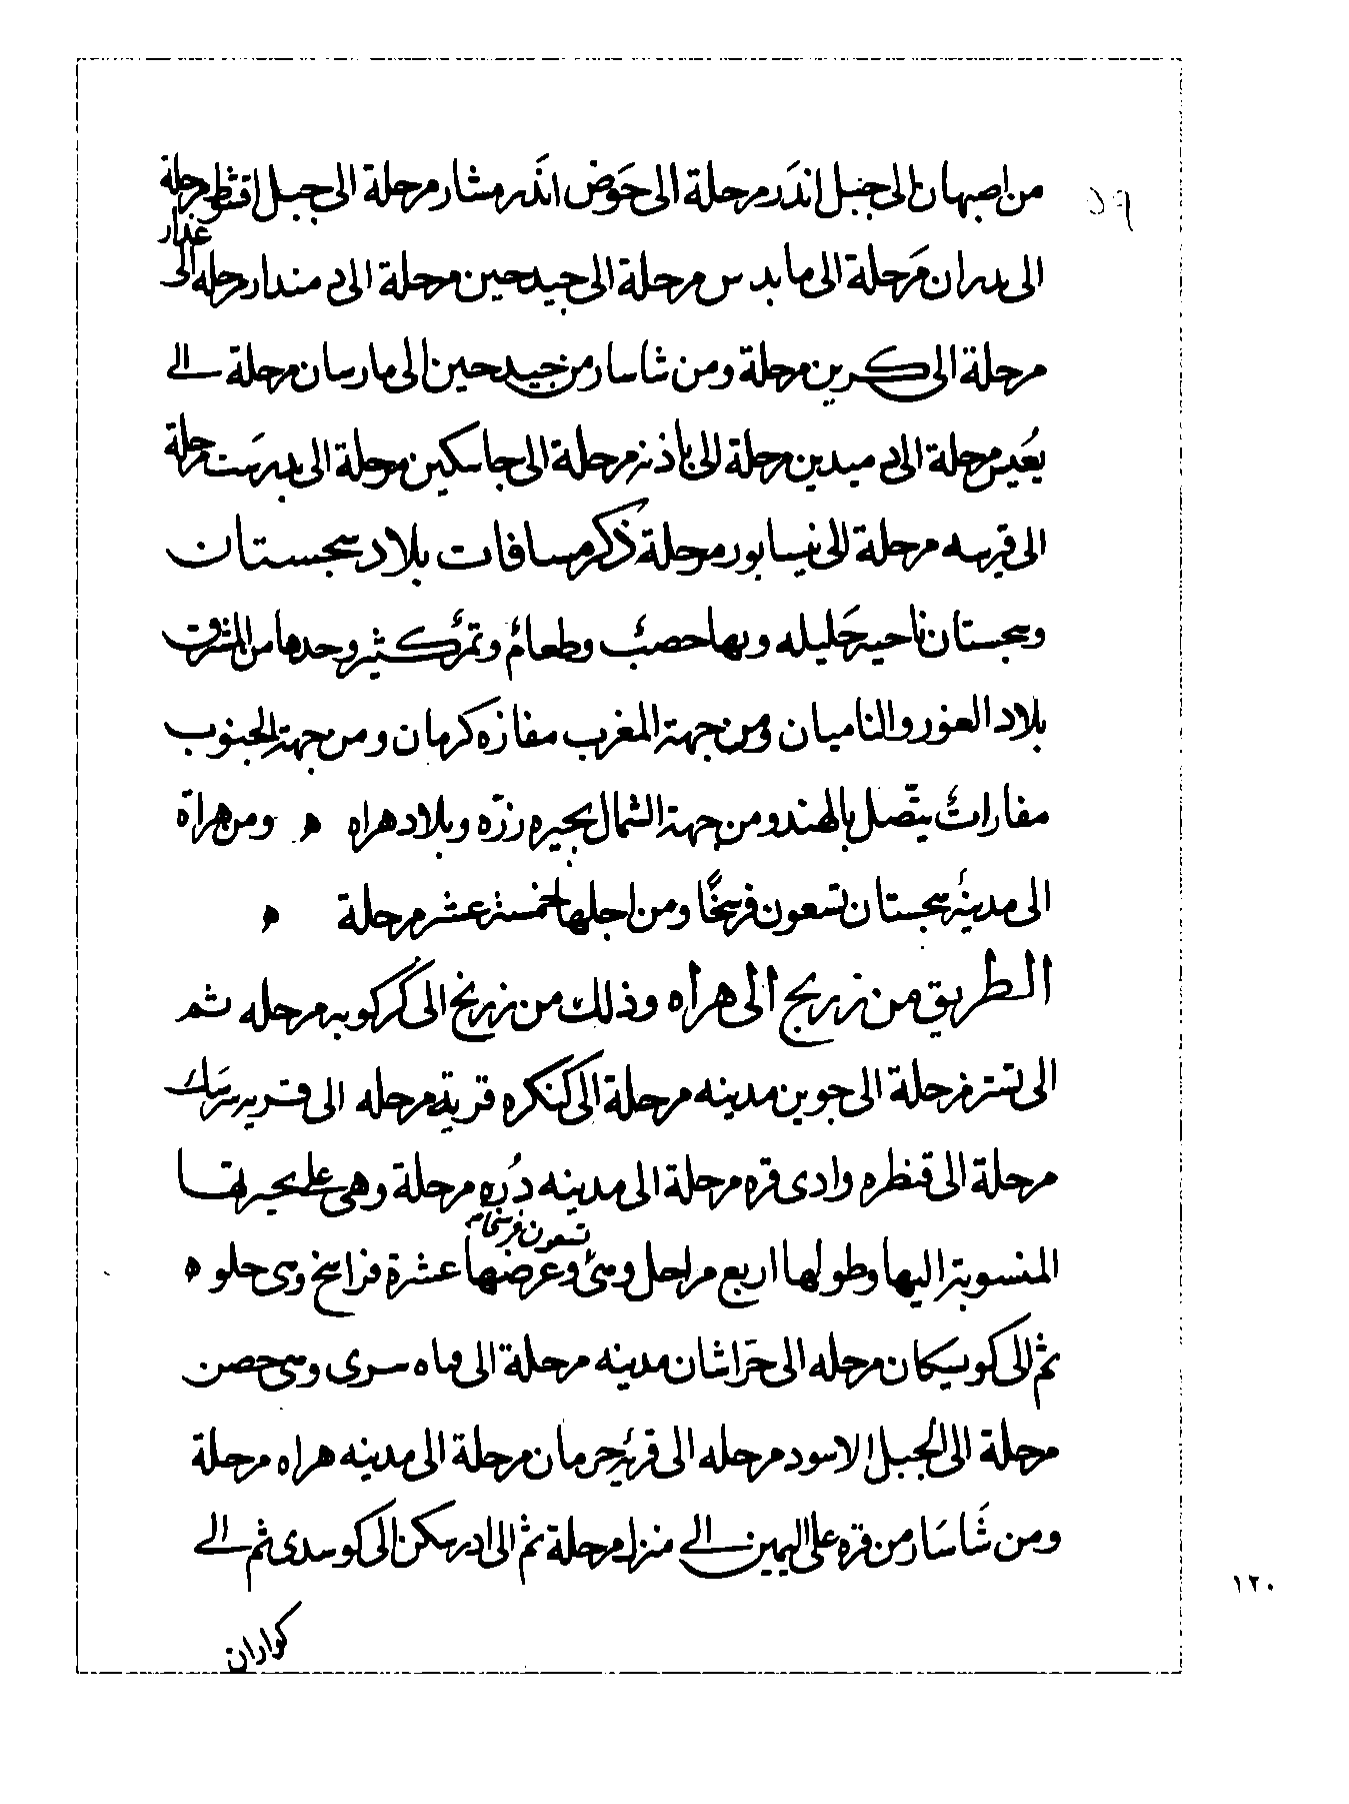 ٥٩
من اصبهان الى جبل اندَر مرحلة الى حَوَض اندَر مشار مرحلة الى جبل مرحلة
الى بدران مَرحلة الى مابدس مرحلة الى جيدحين مرحلة الى ده مندار مرحله الى غدار
مرحلة الى كرين مرحلة ومن شا سار من جيدحين الى مارسان مرحلة الى
مرحلة الى ده ميدين مرحلة الى مرحلة الى جاسكين مرحلة الى مرحلة
الى قرسه مرحلة الى نيسابور مرحلة ذكر مسافات بلاد سجستان
وسجستان ناحية جَليله وبها خصبٌ وطعامٌ وتمرٌ كثير وحدها من المشرق
بلاد الغور والناميان ومن جهة المغرب مفازه كرمان ومن جهة الجنوب
مفاراتٌ يتّصل بالهند ومن جهة الشمال بحيره زرّه وبلاد هراه ه ومن هراة
الى مدينة سجستان تسعون فرسخًا ومن اجلها خمسة عشر مرحلة ه
الطريق من زرنج الى هراه وذلك من زرنج الى كركويه مرحله ثم
الى تستر مرحلة الى جوين مدينه مرحلة الى كنكره قرية مرحله الى قريه سَرشك
مرحلة الى قنطره وادى فره مرحلة الى مدينه دُره مرحلة وهى على بحيرتها
المنسوبة اليها وطولها اربع مراحل وهى تسعون فرسخا وعرضها عشرة فراسخ وهى حلو ه
ثم الى كوسيكان مرحله الى خَراشان مدينه مرحلة الى ماه سرى وهى حصن
مرحلة الى الجبل الاسود مرحله الى قرية جرمان مرحلة الى مدينه هراه مرحلة
ومن شَا سَار من فره على اليمين الى منزل مرحلة ثم الى ادرسكن الى كوسدى ثم الى
كواران
١٢٠